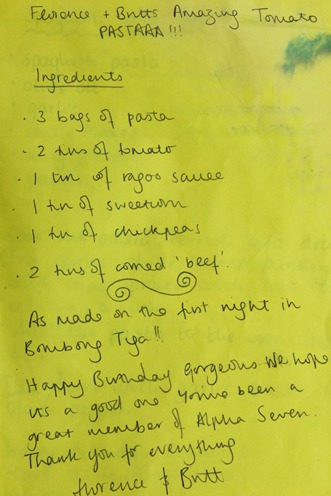 Florence + Britts Amazing Tomato
PASTAAA !!!
Ingredients
· 3 bags of pasta
· 2 tins of tomato
· 1 tin of ragoo sauce
· 1 tin of sweetcorn
· 1 tin of chickpeas
· 2 tins of corned 'beef'.
As made on the first night in
Bombong Tiga!!
Happy Birthday gorgeous. We hope
its a good one. You've been a
great member of Alpha Seven.
Thank you for everything
florence & Britt